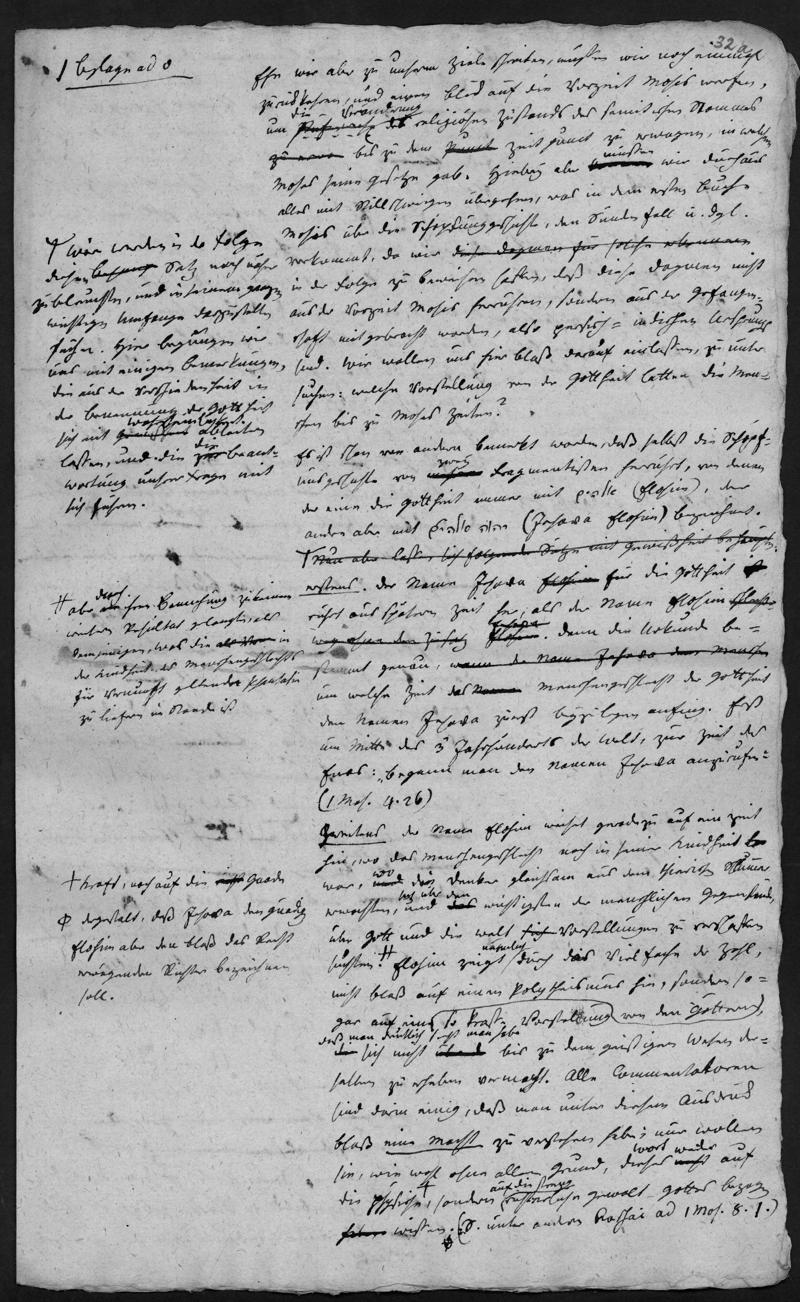 32a
/ beylage ad 0
Ehe wir aber zu unserm Ziele schreiten, müssen wir noch einmal
zurückkehren, und einen Blick auf die Vorzeit Mosis werfen,
um die Veränderung des religiösen Zustands des semitischen Stammes
bis zu dem Zeitpunct zu erwägen, in welchem
Moses seine Gesetze gab. Hierbey aber müssen wir durchaus
alles mit Stillschweigen übergehen, was in dem ersten Buche
Mosis über die Schöpfungsgeschichte, den Sündenfall u. dgl.
vorkommt, da wir diese Dogmen für solche erkennen
in der Folge zu beweisen hoffen, daß diese Dogmen nicht
aus der Vorzeit Mosis herrühren, sondern aus der Gefangen-
schaft mitgebracht worden, also persisch-indischen Ursprungs
sind. Wir wollen uns hier bloß darauf einlassen, zu unter-
suchen: welche Vorstellung von der Gottheit hatten die Men-
schen bis zu Moses Zeiten?
Es ist schon von andern bemerkt worden, daß selbst die Schöpf-
ungsgeschichte von zwey Fragmentisten herrührt, von denen
der eine die Gottheit immer mit אלהים (Elohim), der
andere aber mit יהוה אלהים (Jehova Elohim) bezeichnet.
Nun aber lassen sich folgende Sätze mit Gewißheit behaupten
erstens. der Name Jehova Elohim für die Gottheit
rührt aus spätern Zeit her, als der Name Elohim
Jehova Elohim. Denn die Urkunde be-
stimmt genau, wann der Name Jehova dem Menschen
um welche Zeit das Menschengeschlecht der Gottheit
den Namen Jehova zuerst beyzulegen anfing. Erst
um Mitte des 3 Jahrhunderts der Welt, zur Zeit des
Enos: "begann man den Namen Jehova anzurufen"
(1 Mos. 4.26)
Zweitens der Name Elohim weiset geradezu auf eine Zeit
hin, wo das Menschengeschlecht noch in seiner Kindheit
war, wo die Denker gleichsam aus dem Thierischen Schlummer
erwachten, und über den wichtigsten der menschlichen Gegenstände,
über Gott und die Welt sich Vorstellungen zu verschaffen
suchten. # Elohim zeigt nämlich durch das Vielfache der Zahl,
nicht bloß auf einen Polytheismus hin, sondern so-
gar auf eine so krasse Vorstellung von den Göttern,
daß man deutlich sieht man habe
sich nicht bis zu dem geistigen Wesen der-
selben zu erheben vermocht. Alle Commentatoren
sind darin einig, daß man unter diesem Ausdruck
bloß eine Macht zu verstehen habe; nur wollen
sie, wie wohl ohne allen Grund, dieses Wort weder auf
die physische +, sondern auf die strenge richterliche Gewalt Gottes bezogen
haben wissen. (S. unter andern Raschi ad 1 Mos. 8.1.)
wir werden in der Folge
diesen Satz noch näher
zu beleuchten, und in seinem ganzen
wichtigen Umfange darzustellen
suchen. Hier begnügen wir
uns mit einigen Bemerkungen,
die aus der Verschiedenheit in
der Benennung der Gottheit
sich mit Wahrscheinlichkeit ableiten
lassen, und die die Beant-
wortung unsrer Frage mit
sich führen.
# aber durch ihre Bemühung zu keinem
weitern Resultat gelangten, als
demjenigen, was die in
der Kindheit des Menschengeschlechts
für Vernunft geltende Phantasie
zu liefern im Stande ist
+ Kraft, noch auf die Gnade
Φ dergestalt, daß Jehova den gnädigen
Elohim aber den bloß das Recht
erwägenden Richter bezeichnen
soll.